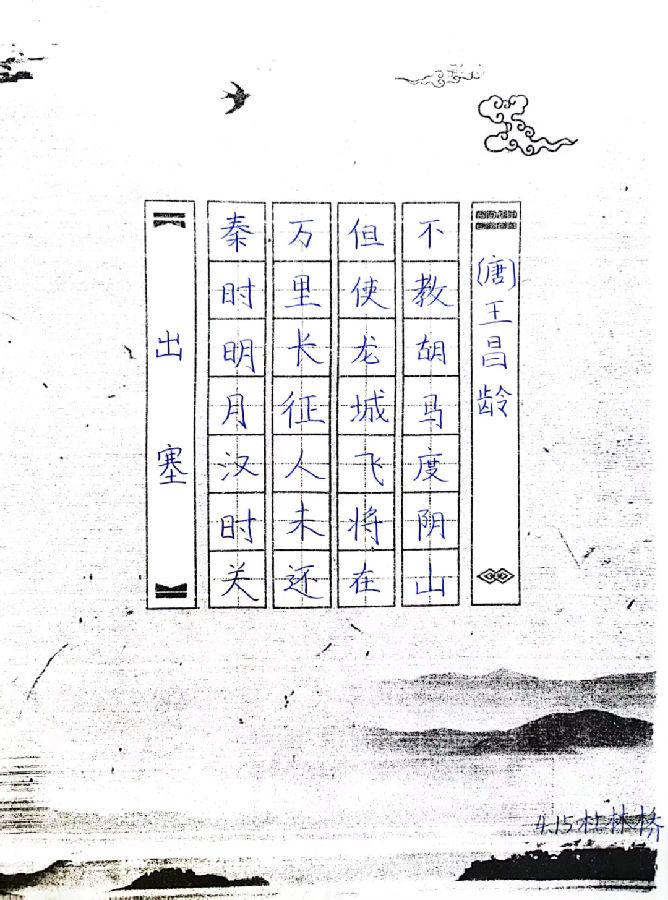 出塞
秦时明月汉时关
万里长征人未还
但使龙城飞将在
不教胡马度阴山
〔唐〕王昌龄
4.15 杜林桥